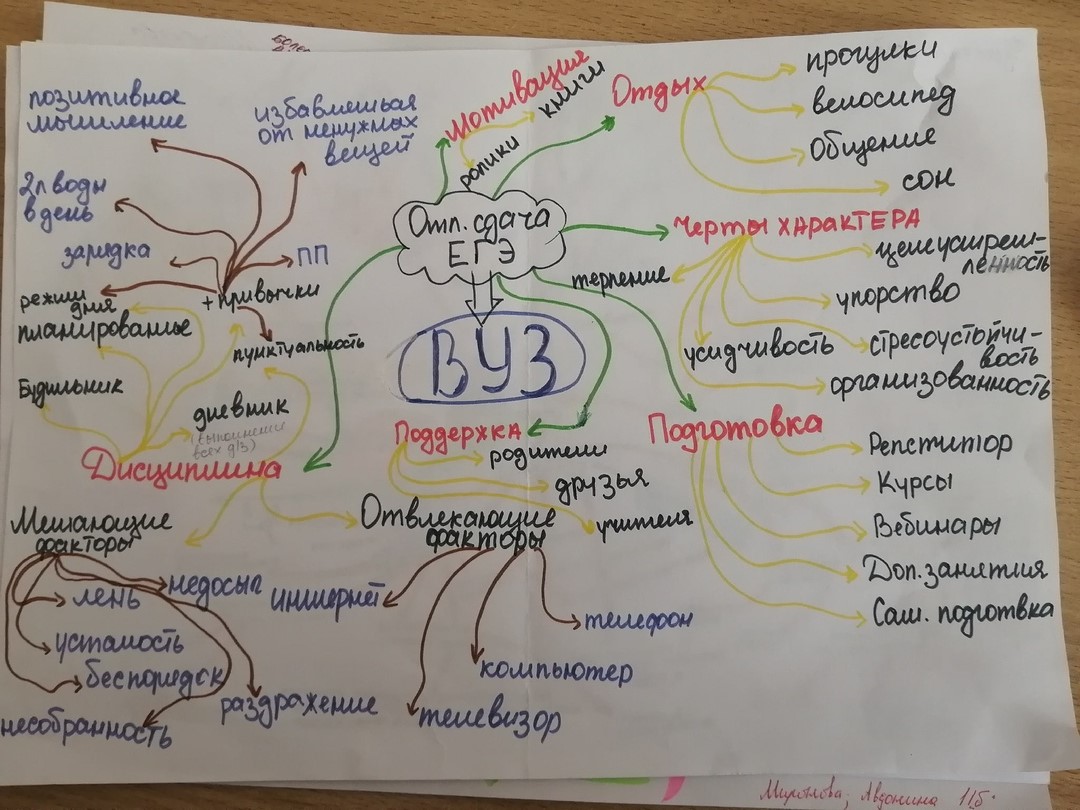 Мотивация
книги
ролики
Отдых
прогулки
велосипед
Общение
сон
позитивное
мышление
избавляешься
от ненужных
вещей
2л воды
в день
зарядка
ПП
режим
дня
+ привычки
пунктуальность
планирование
Будильник
дневник
(выполнение
всех д/з)
Дисциплина
Отл. сдача
ЕГЭ
ВУЗ
Черты характера
терпение
целеустрем-
ленность
упорство
усидчивость
стрессоустойчи-
вость
организованность
Поддержка
родители
друзья
учителя
Подготовка
Репетитор
Курсы
Вебинары
Доп. занятия
Сам. подготвка
Мешающие
факторы
недосып
лень
усталость
беспорядок
несобранность
раздражение
Отвлекающие
факторы
интернет
телефон
компьютер
телевизор
Миронова, Авдонина 11б